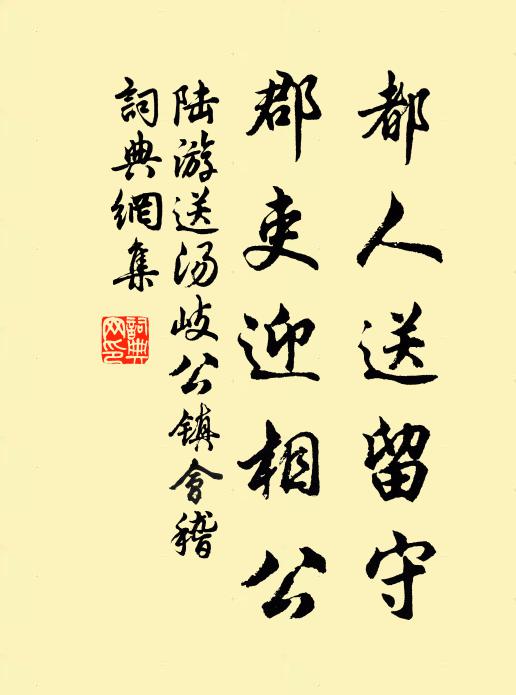 都人送留守
郡吏迎相公
陆游送汤岐公镇会稽
詞典網集
詞典网印